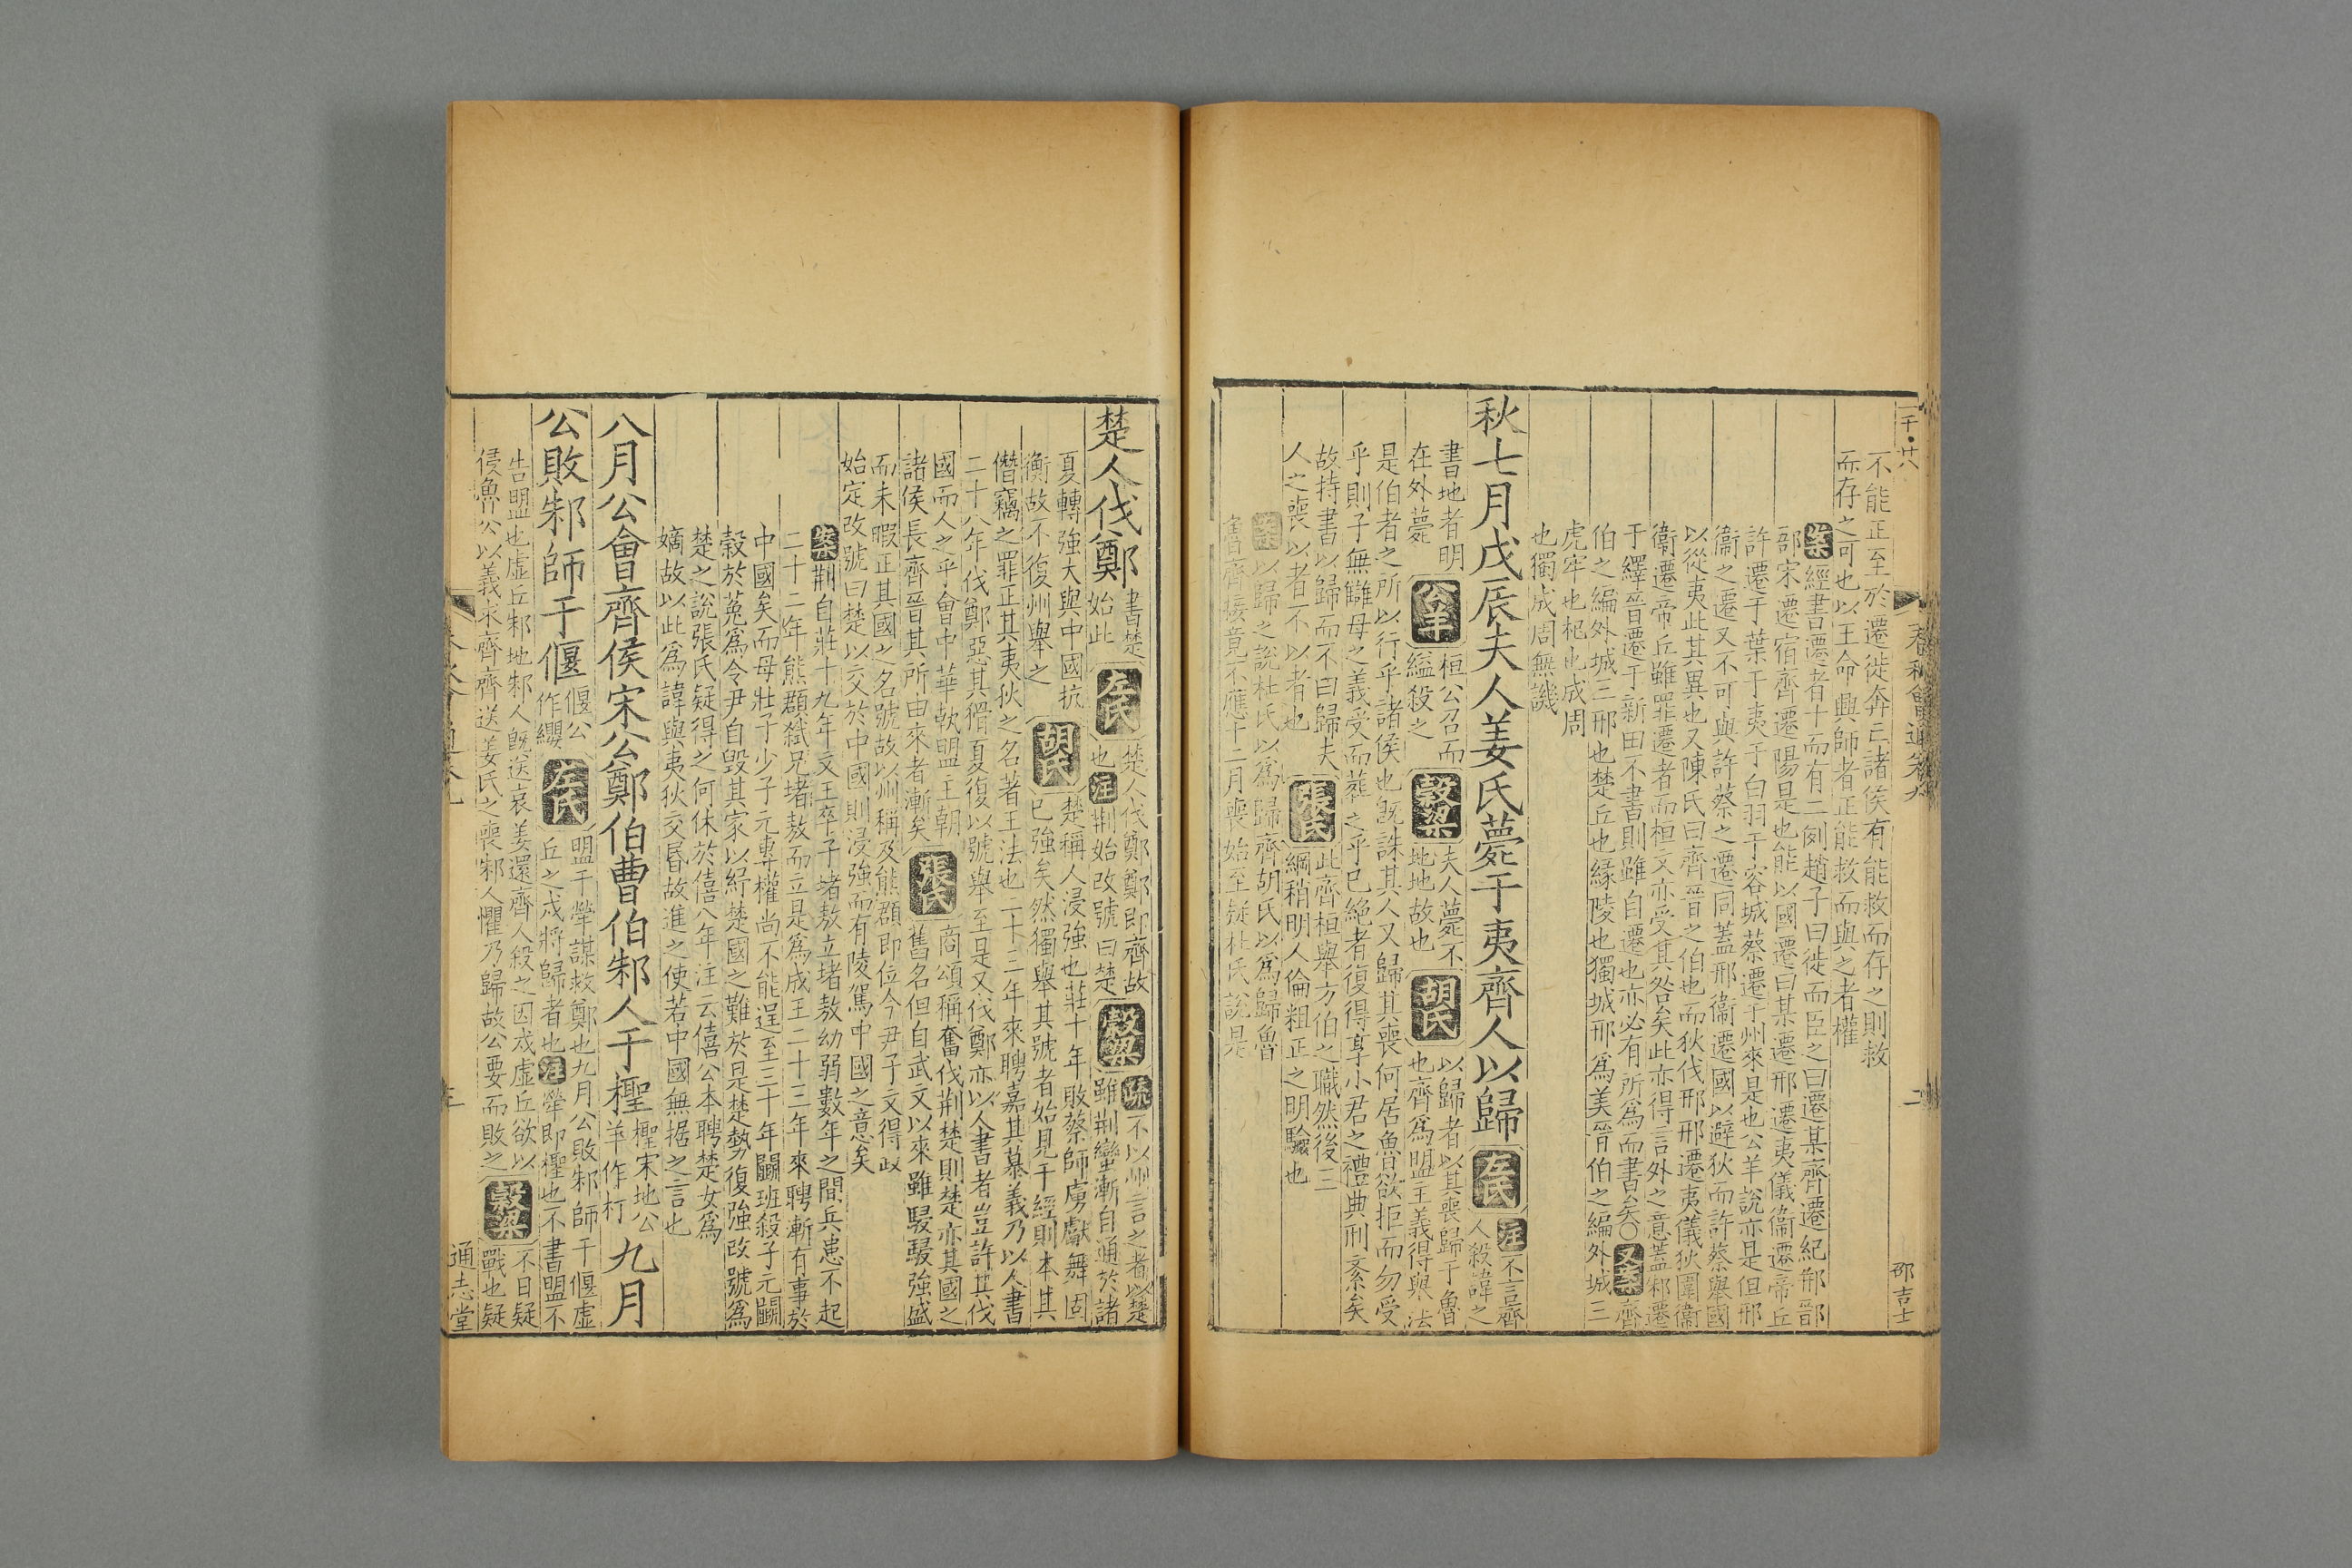 不能正至於遷徙奔亡諸侯有能救而存之則救
而存之可也以王命興師者正能救而與之者權
案經書遷者十而有二例趙子曰徙而臣之曰遷某齊遷紀郱鄑
郚宋遷宿齊遷陽是也能以國遷曰某遷邢遷夷儀衞遷帝丘
許遷于葉于夷于白羽于容城蔡遷于州來是也公羊說亦是但邢
衞之遷又不可與許蔡之遷同蓋邢衞遷國以避狄而許蔡舉國
以從夷此其異也又陳氏曰齊晉之伯也而狄伐邢邢遷夷儀狄圍衞
衞遷帝丘雖罪遷者而桓文亦受其咎矣此亦得言外之意蓋邾遷
于繹晉遷于新田不書則雖自遷也亦必有所爲而書矣〇又案齊
伯之編外城三邢也楚丘也緣陵也獨城邢爲美晉伯之編外城三
虎牢也杞也成周
也獨成周無譏
秋七月戊辰夫人姜氏薨于夷齊人以歸左氏注不言齊
人殺諱之
書地者明
在外薨公羊桓公召而
縊殺之穀梁夫人薨不
地地故也胡氏以歸者以其喪歸于魯
也齊爲盟主義得與法
是伯者之所以行乎諸侯也旣誅其人又歸其喪何居魯欲拒而勿受
乎則子無讎母之義受而葬之乎已絶者復得享小君之禮典刑紊矣
故持書以歸而不曰歸夫
人之喪以者不以者也張氏此齊桓舉方伯之職然後三
綱稍明人倫粗正之明驗也
案以歸之說杜氏以爲歸齊胡氏以爲歸魯
若齊接竟不應十二月喪始至疑杜氏說是
楚人伐鄭書楚
始此左氏楚人伐鄭鄭即齊故
也注荆始改號曰楚穀梁疏不以州言之者以楚
雖荆蠻漸自通於諸
夏轉強大與中國抗
衡故不復州舉之胡氏楚稱人浸強也莊十年敗蔡師虜獻舞固
已強矣然獨舉其號者始見于經則本其
僭竊之罪正其夷狄之名著王法也二十三年來聘嘉其慕義乃以人書
二十八年伐鄭惡其猾夏復以號舉至是又伐鄭亦以人書者豈許其伐
國而人之乎會中華執盟主朝
諸侯長齊晉其所由來者漸矣張氏商頌稱奮伐荆楚則楚亦其國之
舊名但自武文以來雖駸駸強盛
而未暇正其國之名號故以州稱及熊頵即位令尹子文得政
始定改號曰楚以交於中國則浸強而有陵駕中國之意矣
案荆自莊十九年文王卒子堵敖立堵敖幼弱數年之間兵患不起
二十二年熊頵弑兄堵敖而立是爲成王二十三年來聘漸有事於
中國矣而母壯子少子元專權尚不能逞至三十年鬬班殺子元鬬
穀於菟爲令尹自毀其家以紓楚國之難於是楚勢復強改號爲
楚之說張氏疑得之何休於僖八年注云僖公本聘楚女爲
嫡故以此爲諱與夷狄交昬故進之使若中國無据之言也
八月公會齊侯宋公鄭伯曹伯邾人于檉檉宋地公
羊作朾九月
公敗邾師于偃偃公
作纓左氏盟于犖謀救鄭也九月公敗邾師于偃虛
丘之戍將歸者也注犖即檉也不書盟不
告盟也虛丘邾地邾人旣送哀姜還齊人殺之因戍虛丘欲以
侵魯公以義求齊齊送姜氏之喪邾人懼乃歸故公要而敗之穀梁不日疑
戰也疑
通志堂
春秋會通卷九
二
邵吉士